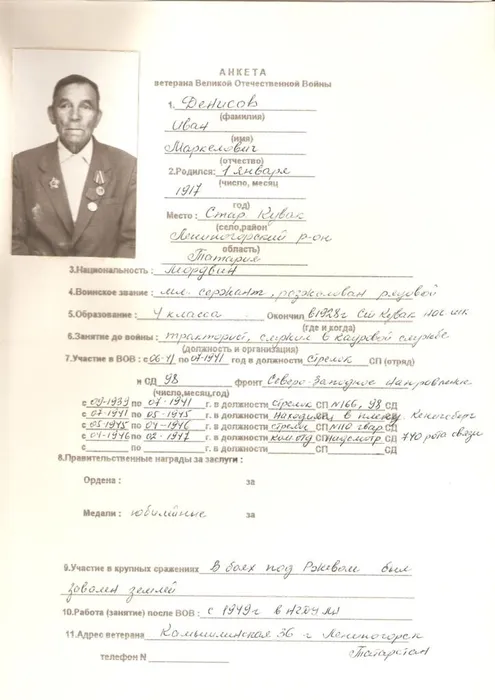 АНКЕТА
ветерана Великой Отечественной Войны
1. Денисов
(фамилия)
Иван
(имя)
Маркелович
(отчество)
2.Родился: 1 января
(число, месяц
1917
год)
Место: Стар. Кувак
(село,район
Лениногорский р-он
область)
Татария
3.Национальность: мордвин
4.Воинское звание: мл. сержант, розжалован рядовой
5.Образование: 4 класса Окончил в 1928г Ст Кувак нач шк
(где и когда)
6.Занятие до войны: тракторист, служил в кадровой службе
(должность и организация)
7.Участие в ВОВ: с 06-41 по 07-1941 год в должности стрелок СП (отряд)
и СД 98 фронт Северо-Западное направление
(число,месяц,год)
с 09-1939 по 07-1941 г. в должности стрелок СП №166, 98 СД
с 07-1941 по 05-1945 г. в должности находился в плену Кенигсберг
с 05-1945 по 04-1946 г. в должности стрелок СП №110 гвар. СД
с 04-1946 по 02-1947 г. в должности ком отд СП СД 740 рота связи
с по г. в должности СП СД
8.Правительственные награды за заслуги:
Ордена: за
Медали: юбилейные за
9.Участие в крупных сражениях В боях под Ржевом был
завален землей
10.Работа (занятие) после ВОВ: с 1949г в НГДУ ЛН
11.Адрес ветерана Камышлинская 36 г Лениногорск
Татарстан
телефон N